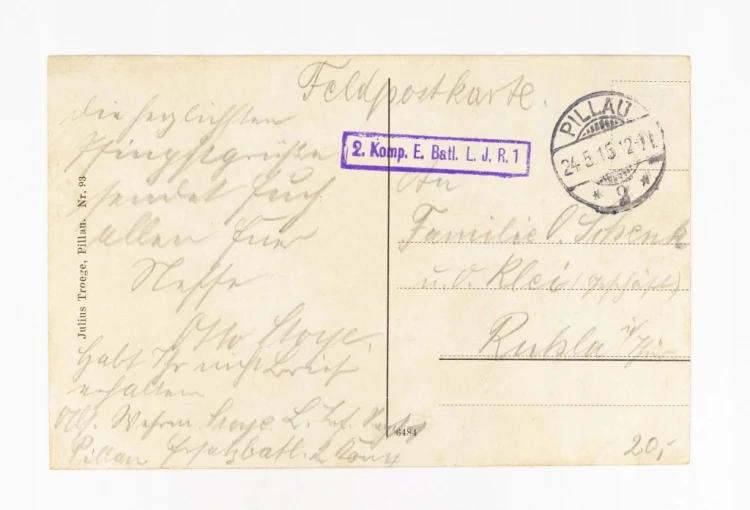 Feldpostkarte.
PILLAU
24.5.15.12-1N.
* 2 *
2. Komp. E. Batl. L. J. R. 1
die herzlichsten
Pfingstgrüße
sendet Euch
allen Euer
Neffe
Otto
Habt Ihr nicht Brief
erhalten
Wehrm. L. Inf.
Pillau Ersatzbatl. 2 Komp
An
Familie O. Schenk
u. O. Klei (Geschäft)
Ruhla i/Thür
Julius Troege, Pillau. Nr. 93
6484
20,-